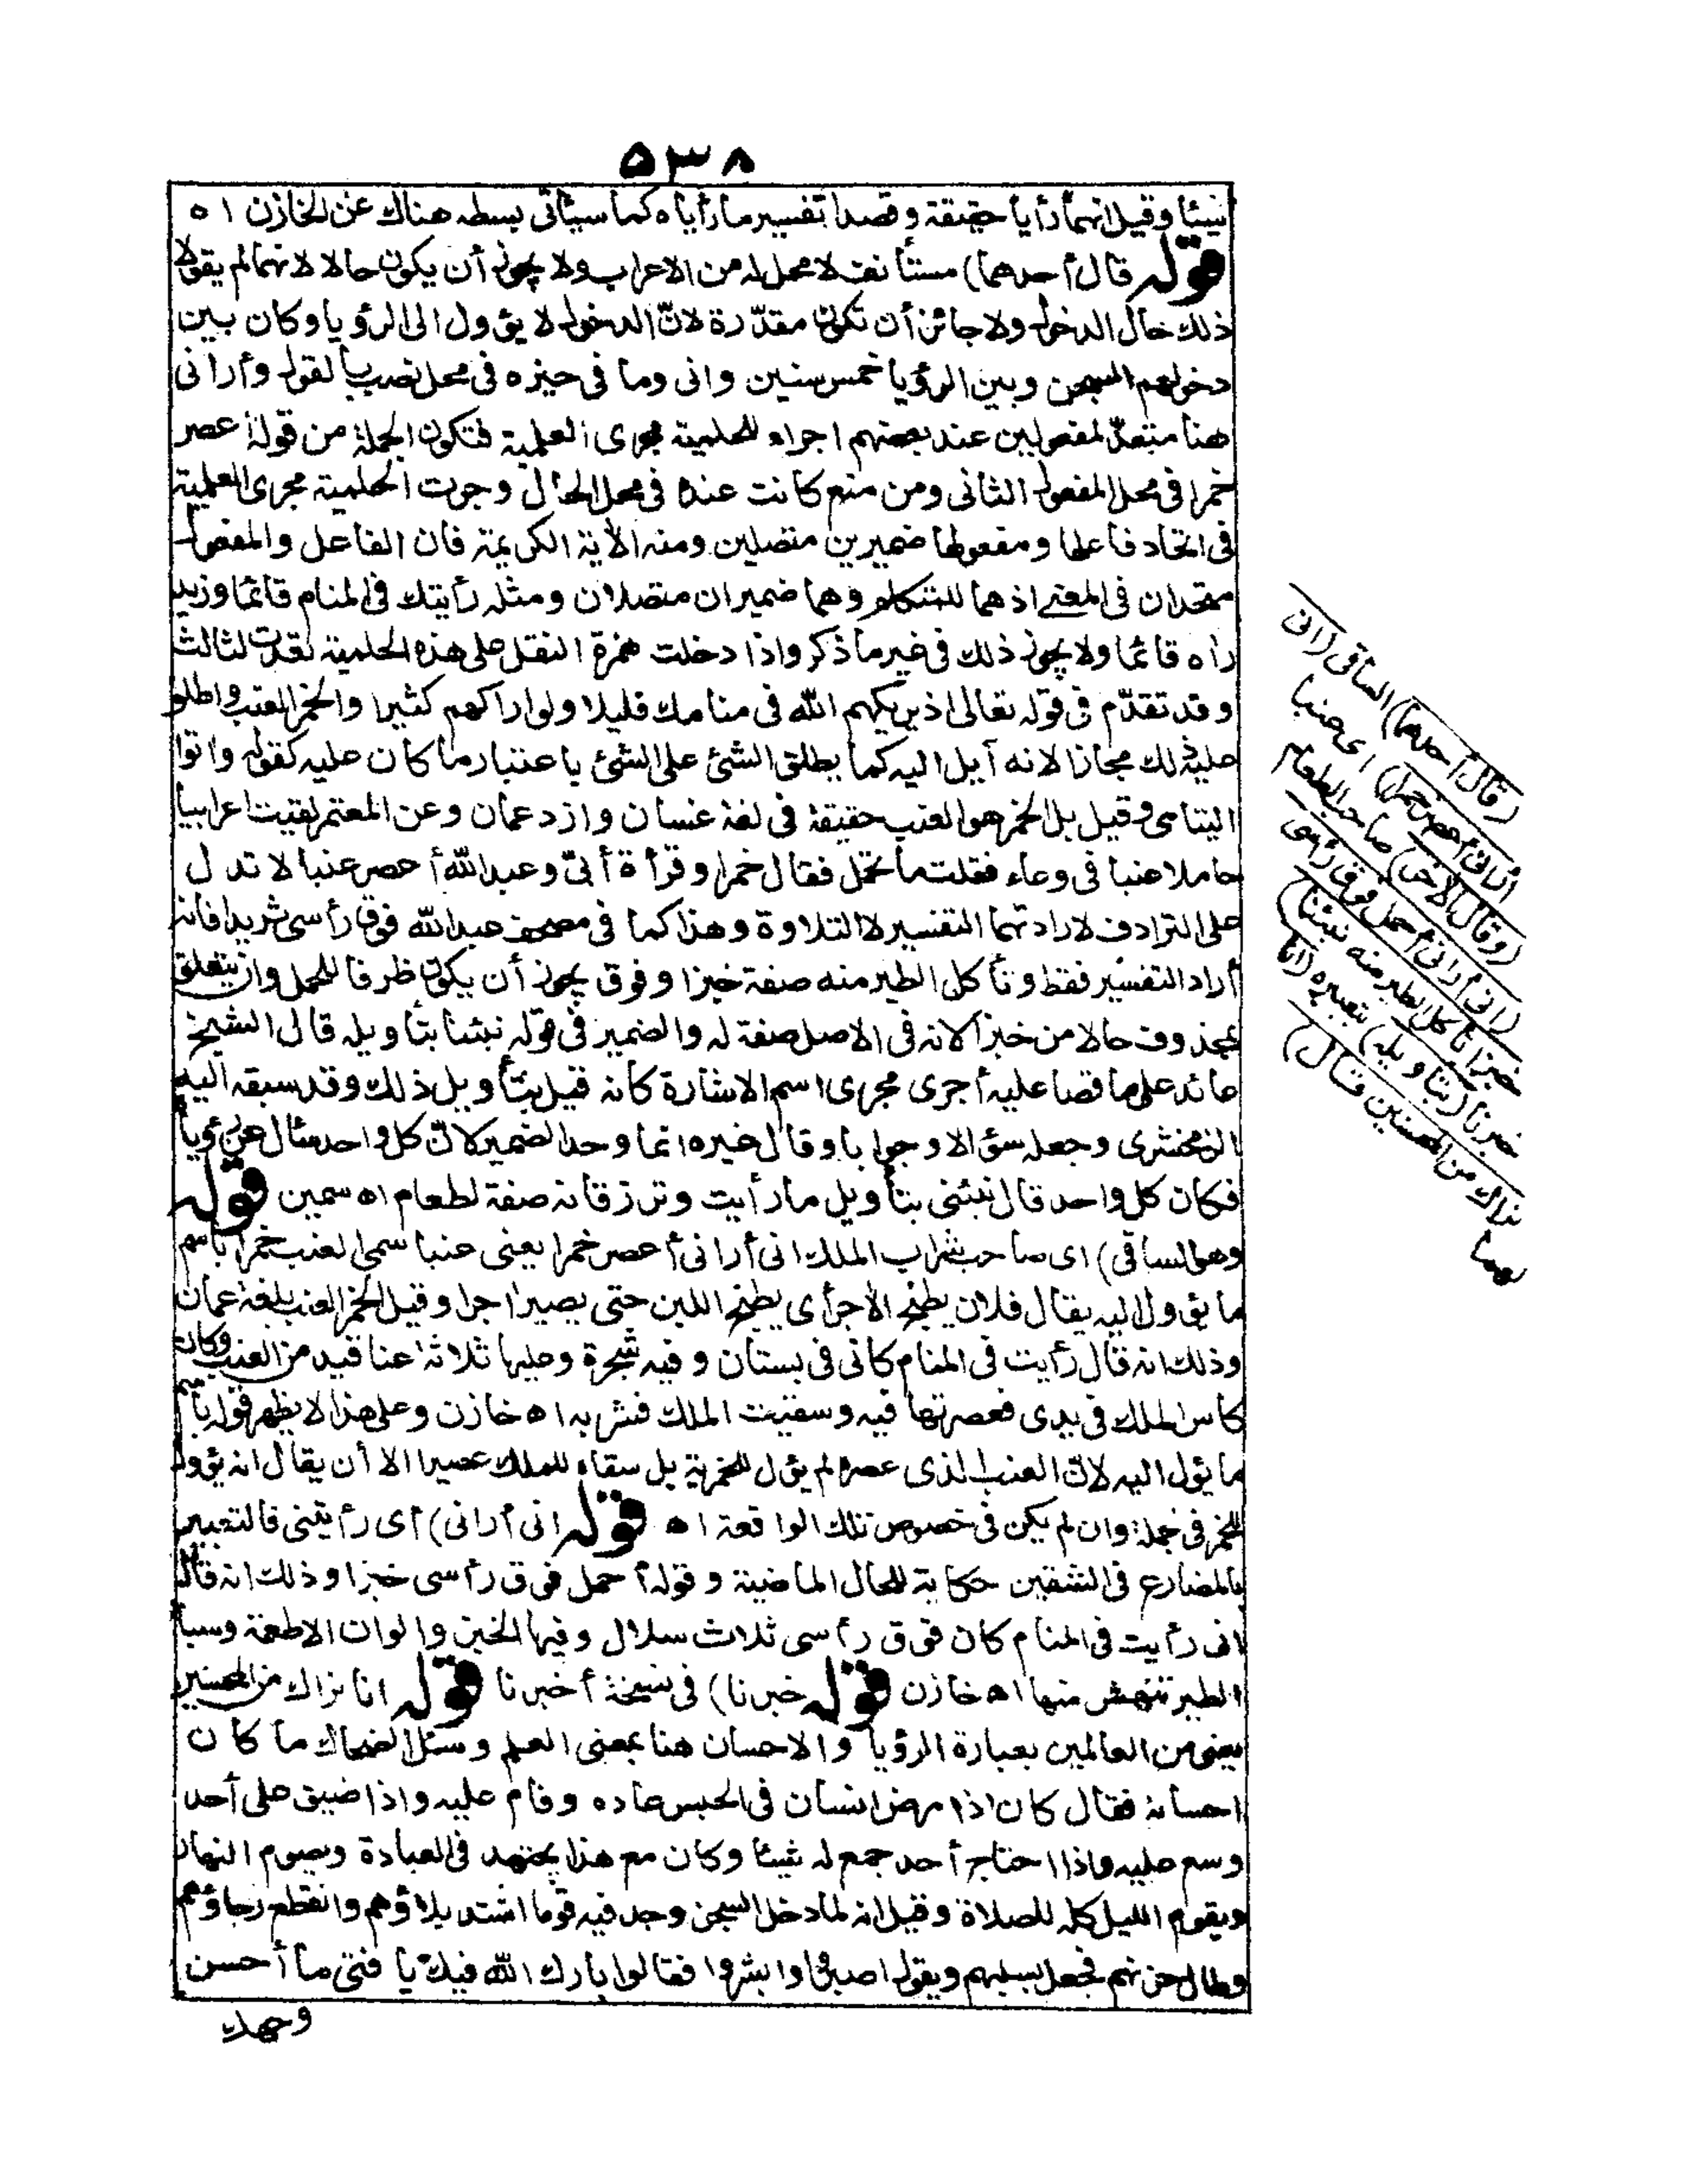 ٥٣٨
شيئا وقيل انهما رأيا حقيقة وقصدا تفسير ما رأياه كما سيأتى بسطه هناك عن الخازن اه
قوله قال أحدهما) مستأنف لا محل له من الاعراب ولا يجوز أن يكون حالا لانهما لم يقولا
ذلك حال الدخول ولا جائز أن تكون مقدّرة لانّ الدخول لا يؤول الى الرؤيا وكان بين
دخولهم السجن وبين الرؤيا خمس سنين وانى وما فى حيزه فى محل نصب بالقول وأرانى
هنا متعدّ لمفعولين عند بعضهم اجراء للحلمية مجرى العلمية فتكون الجملة من قوله أعصر
خمرا فى محل المفعول الثانى ومن منع كانت عنده فى محل الحال وجرت الحلمية مجرى العلمية
فى اتحاد فاعلها ومفعولها ضميرين متصلين ومنه الآية الكريمة فان الفاعل والمفعول
متحدان فى المعنى اذ هما للمتكلم وهما ضميران متصلان ومثله رأيتك فى المنام قائما وزيد
رآه قائما ولا يجوز ذلك فى غير ما ذكر واذا دخلت همزة النقل على هذه الحلمية تعدت لثالث
وقد تقدّم فى قوله تعالى اذ يريكهم الله فى منامك قليلا ولو أراكهم كثيرا والخمر العنب واطلق
عليه ذلك مجازا لانه آيل اليه كما يطلق الشئ على الشئ باعتبار ما كان عليه كقوله وآتوا
اليتامى وقيل بل الخمر هو العنب حقيقة فى لغة غسان وازد عمان وعن المعتمر لقيت اعرابيا
حاملا عنبا فى وعاء فقلت ما تحمل فقال خمرا وقرأة أبىّ وعبد الله أعصر عنبا لا تدل
على الترادف لارادتهما التفسير لا التلاوة وهذا كما فى مصحف عبد الله فوق رأسى ثريدا فانه
أراد التفسير فقط وتأكل الطير منه صفة خبزا وفوق يجوز أن يكون ظرفا للحمل وان يتعلق
بمحذوف حالا من خبزا لانه فى الاصل صفة له والضمير فى قوله نبئنا بتأويله قال الشيخ
عائد على ما قصا عليه أجرى مجرى اسم الاشارة كانه قيل بتأويل ذلك وقد سبقه اليه
الزمخشرى وجعله سؤالا وجوابا وقال غيره انما وحد الضمير لانّ كل واحد سأل عن رؤياه
فكان كل واحد قال نبئنى بتأويل ما رأيت وترزقانه صفة لطعام اه سمين قوله
وهو الساقى) اى صاحب شراب الملك انى أرانى أعصر خمرا يعنى عنبا سمى العنب خمرا باسم
ما يؤول اليه يقال فلان يطبخ الآجر أى يطبخ اللبن حتى يصير آجرا وقيل الخمر العنب بلغة عمان
وذلك انه قال رأيت فى المنام كانى فى بستان وفيه شجرة وعليها ثلاثة عناقيد من العنب وكان
كاس الملك فى يدى فعصرتها فيه وسقيت الملك فشربه اه خازن وعلى هذا لا يظهر قوله باسم
ما يؤل اليه لانّ العنب الذى عصره لم يؤل للخمرية بل سقاه للملك عصيرا الا أن يقال انه يؤول
للخمر فى جملة وان لم يكن فى خصوص تلك الواقعة اه قوله انى أرانى) أى رأيتنى فالتعبير
بالمضارع فى الشقين حكاية للحال الماضية وقوله أحمل فوق رأسى خبزا وذلك انه قال
انى رأيت فى المنام كان فوق رأسى ثلاث سلال وفيها الخبز والوان الاطعمة وسباع
الطير تنهش منها اه خازن قوله خبرنا) فى نسخة أخبرنا قوله انا نراك من المحسنين
يعنى من العالمين بعبارة الرؤيا والاحسان هنا بمعنى العلم وسئل الضحاك ما كان
احسانه فقال كان اذا مرض انسان فى الحبس عاده وقام عليه واذا ضيق على أحد
وسع عليه واذا احتاج أحد جمع له شيئا وكان مع هذا يجتهد فى العبادة ويصوم النهار
ويقوم الليل كله للصلاة وقيل انه لما دخل السجن وجد فيه قوما اشتد بلاؤهم وانقطع رجاؤهم
وطال حزنهم فجعل يسليهم ويقول اصبروا وابشروا فقالوا بارك الله فيك يا فتى ما أحسن
وجهك
(قال أحدهما) الساقى (انى
أرانى أعصر خمرا) اى عنبا
(وقال الآخر) صاحب الطعام
(انى أرانى أحمل فوق رأسى
خبزا تأكل الطير منه نبئنا)
خبرنا (بتأويله) بتعبيره (انا
نراك من المحسنين قال)
لهما